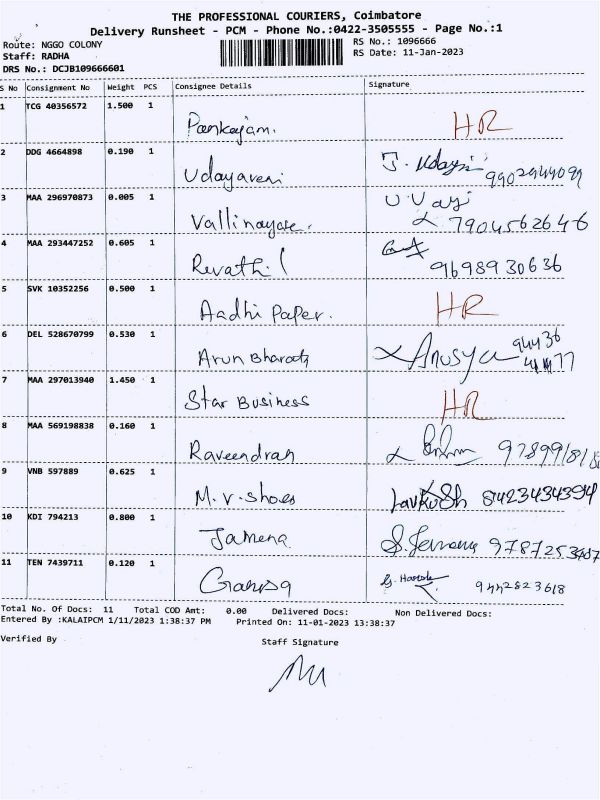 THE PROFESSIONAL COURIERS, Coimbatore
Delivery Runsheet - PCM - Phone No.:0422-3505555 - Page No.:1
Route: NGGO COLONY
Staff: RADHA
DRS No.: DCJB109666601
RS No.: 1096666
RS Date: 11-Jan-2023
S No Consignment No Weight PCS Consignee Details Signature
1 TCG 40356572 1.500 1 Pankajam. HR
2 DDG 4664898 0.190 1 Udayaveni J. Udaya 9902944099
3 MAA 296970873 0.005 1 Vallinayate. U.Vay
7904562646
4 MAA 293447252 0.605 1 Revathi
9698930636
5 SVK 10352256 0.500 1 Aadhi Paper. HR
6 DEL 528670799 0.530 1 Arun Bharath Anusya 94436
7 MAA 297013940 1.450 1 Star Business HR
8 MAA 569198838 0.160 1 Raveendran
9 VNB 597889 0.625 1 M.V.Shoes Lavkush 8423434394
10 KDI 794213 0.800 1 Jamena S. Jemona
11 TEN 7439711 0.120 1 Ganesa 9442823618
Total No. Of Docs: 11 Total COD Amt: 0.00 Delivered Docs: Non Delivered Docs:
Entered By :KALAIPCM 1/11/2023 1:38:37 PM Printed On: 11-01-2023 13:38:37
Verified By Staff Signature